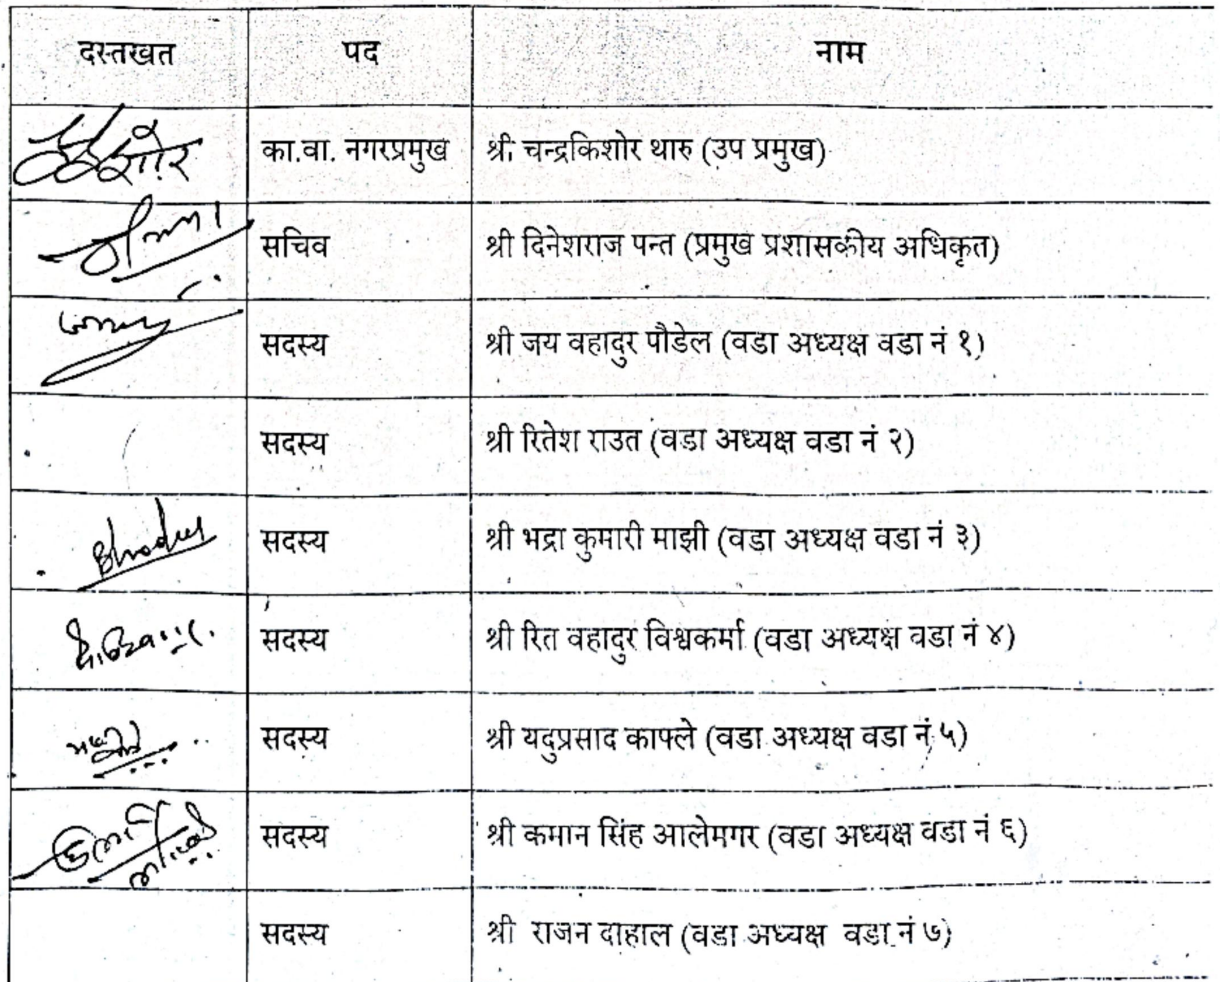 दस्तखत पद नाम
का.वा. नगरप्रमुख श्री चन्द्रकिशोर थारु (उप प्रमुख)
सचिव श्री दिनेशराज पन्त (प्रमुख प्रशासकीय अधिकृत)
सदस्य श्री जय वहादुर पौडेल (वडा अध्यक्ष वडा नं १)
सदस्य श्री रितेश राउत (वडा अध्यक्ष वडा नं २)
सदस्य श्री भद्रा कुमारी माझी (वडा अध्यक्ष वडा नं ३)
सदस्य श्री रित वहादुर विश्वकर्मा (वडा अध्यक्ष वडा नं ४)
सदस्य श्री यदुप्रसाद काफ्ले (वडा अध्यक्ष वडा नं ५)
सदस्य श्री कमान सिंह आलेमगर (वडा अध्यक्ष वडा नं ६)
सदस्य श्री राजन दाहाल (वडा अध्यक्ष वडा नं ७)